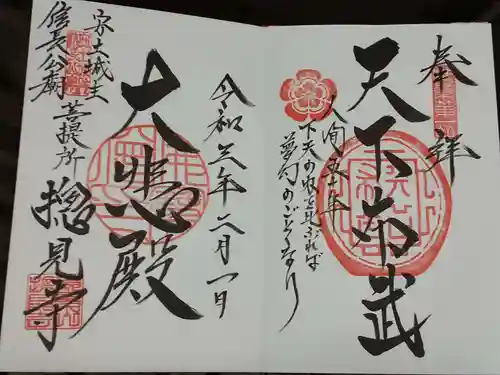 奉拝
天下布武
人間五十年
下天の内を見れば
夢幻のごとくなり
令和三年二月一日
大悲殿
安土城主
信長公廟
菩提所
摠見寺